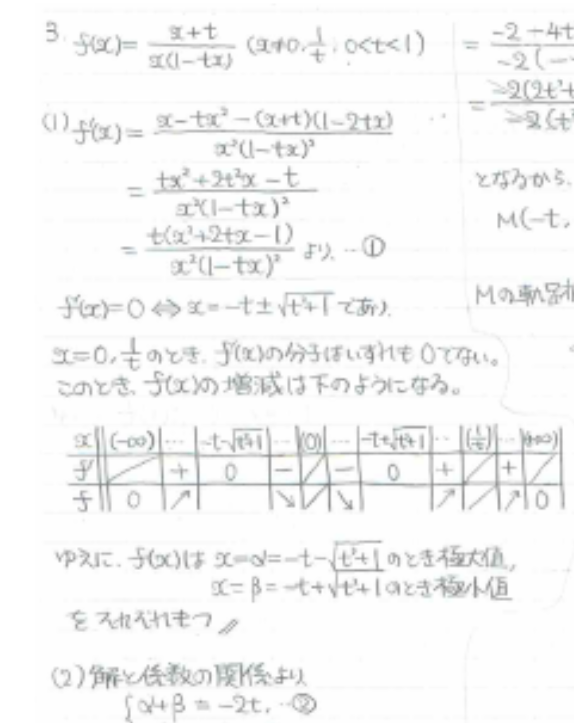 3. f(x)= (x+t)/(x(1-tx)) (x≠0, 1/t, 0<t<1)
(1) f'(x)= (x-tx²-(x+t)(1-2tx))/(x²(1-tx)²)
= (tx²+2t²x-t)/(x²(1-tx)²)
= (t(x²+2tx-1))/(x²(1-tx)²) より, …①
f'(x)=0 ⇔ x=-t±√(t²+1) であり,
x=0, 1/t のとき, f'(x)の分子はいずれも0でない。
このとき, f(x)の増減は下のようになる。
x | (-∞) | … | -t-√(t²+1) | … | (0) | … | -t+√(t²+1) | … | (1/t) | … | (+∞)
f' | ／ | + | 0 | - | ／ | - | 0 | + | ／ | + | ／
f | 0 | ↗ | | ↘ | ／ | ↘ | | ↗ | ／ | ↗ | 0
ゆえに, f(x)は x=α=-t-√(t²+1) のとき極大値,
x=β=-t+√(t²+1) のとき極小値
をそれぞれもつ
(2) 解と係数の関係より
{α+β = -2t, …②
= -2-4t
-2(-
= -2(2t²+t
となるから,
M(-t,
Mの軌跡